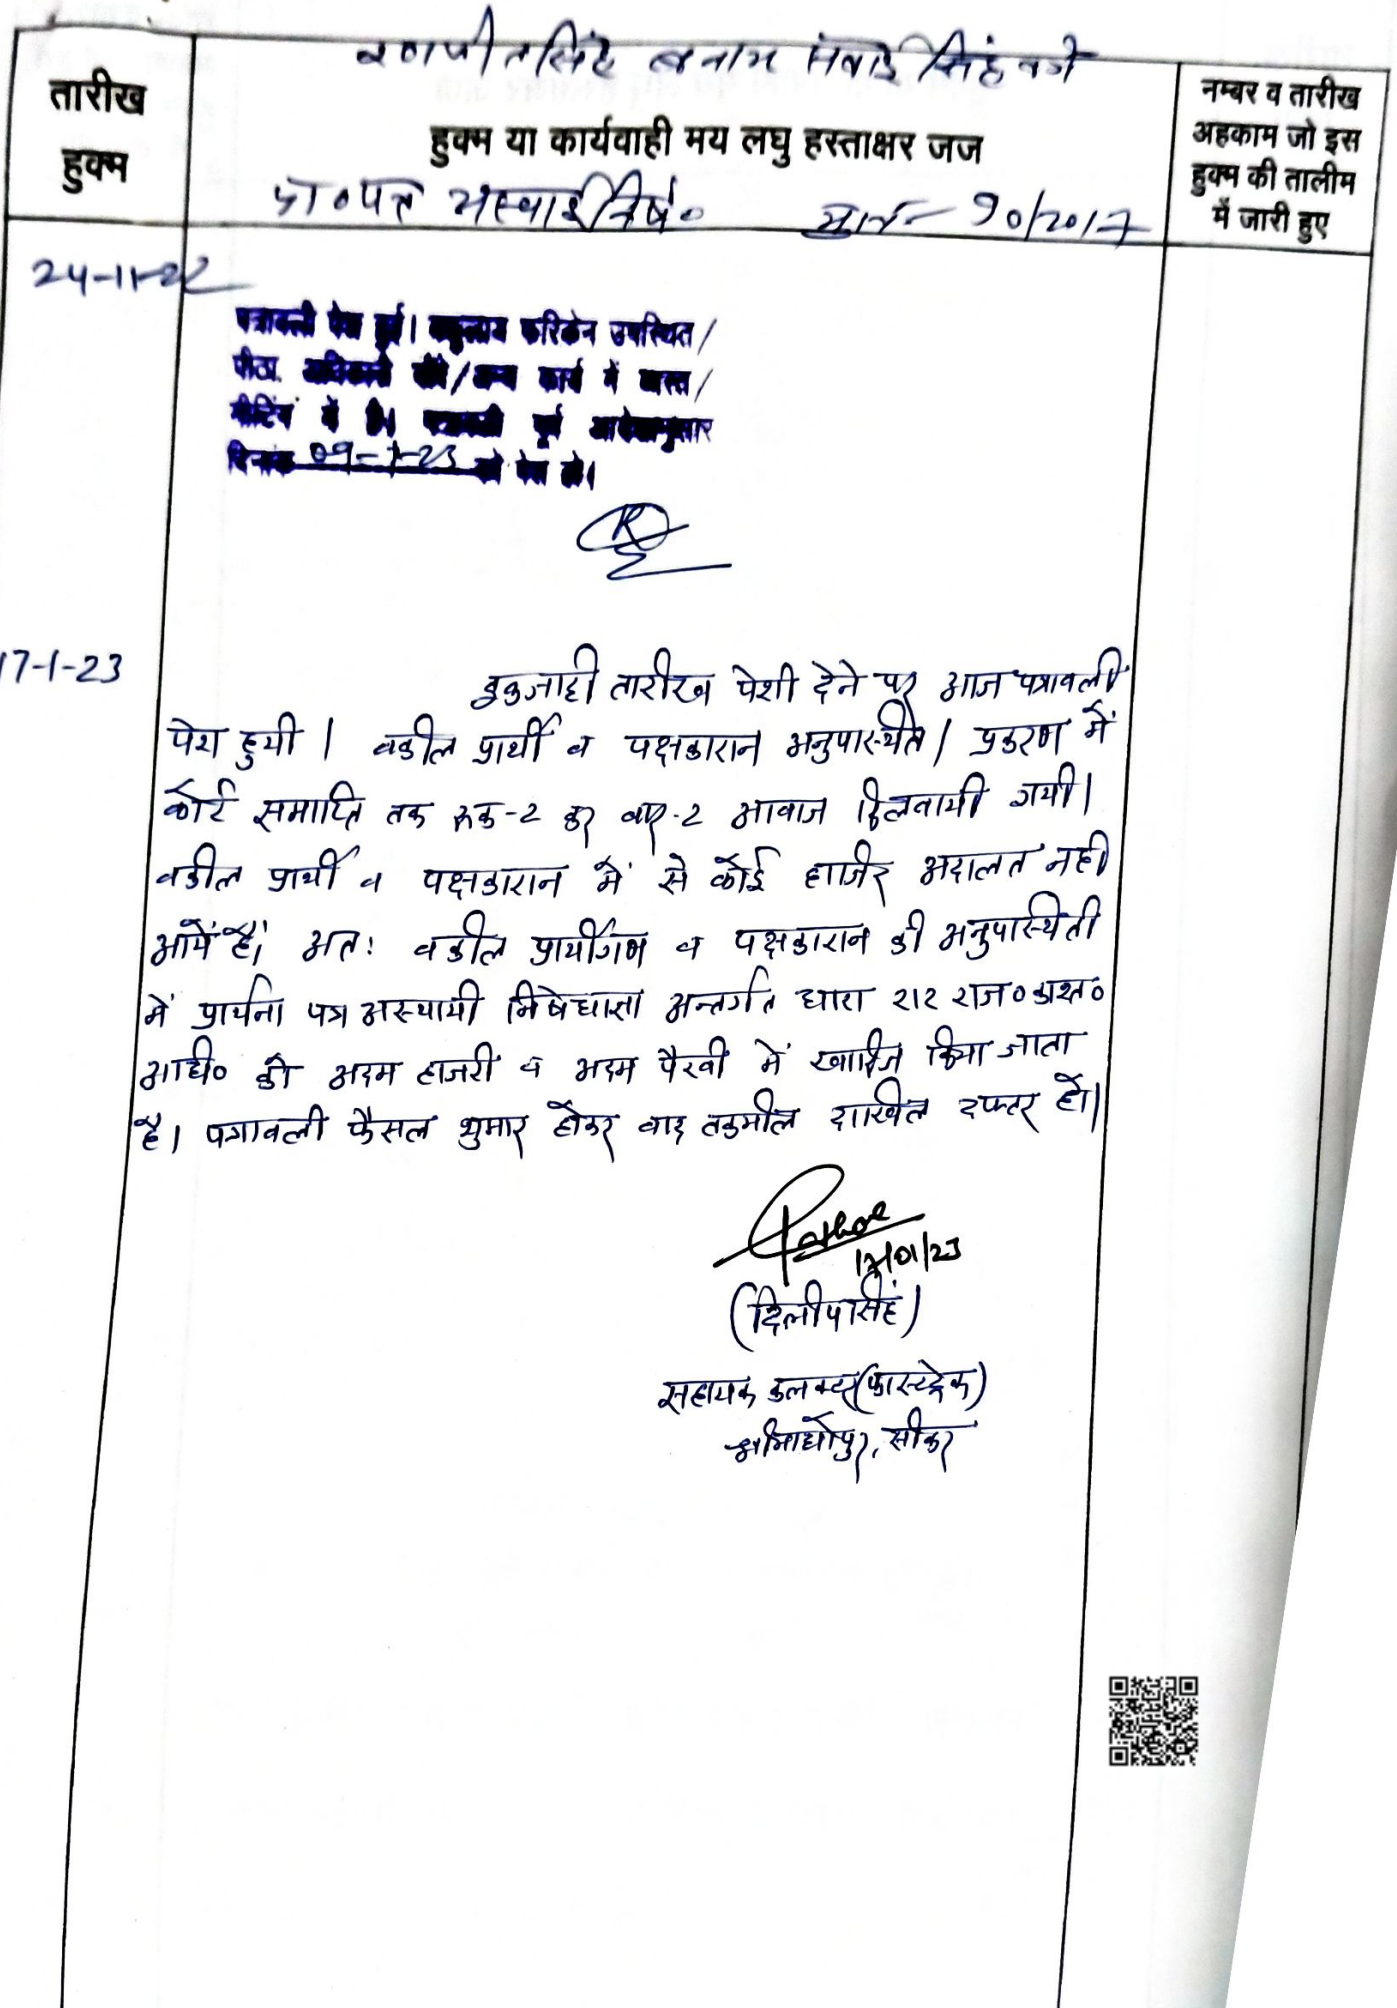 रणजीतसिंह बनाम सवाई सिंह वगै
तारीख
हुक्म
हुक्म या कार्यवाही मय लघु हस्ताक्षर जज
नम्बर व तारीख
अहकाम जो इस
हुक्म की तालीम
में जारी हुए
प्रा०पत्र अस्थाई निषे० 90/2017
24-11-22
पत्रावली पेश हुई। वकुलाय फरिकेन उपस्थित/
पीठा. अधिकारी दौरे/अन्य कार्य में व्यस्त/
मीटिंग में है। पत्रावली पूर्व आदेशानुसार
दिनांक 09-1-23 को पेश हो।
17-1-23
इकजाही तारीख पेशी देने पर आज पत्रावली
पेश हुयी। वकील प्रार्थी व पक्षकारान अनुपस्थित। प्रकरण में
कोर्ट समाप्ति तक रूक-2 कर बार-2 आवाज दिलवायी गयी।
वकील प्रार्थी व पक्षकारान में से कोई हाजिर अदालत नही
आयें हैं। अतः वकील प्रार्थीगण व पक्षकारान की अनुपस्थिती
में प्रार्थना पत्र अस्थायी निषेधाज्ञा अन्तर्गत धारा 212 राज० काश्त०
अधि० को अदम हाजरी व अदम पैरवी में खारिज किया जाता
है। पत्रावली फैसल शुमार होकर बाद तकमील दाखिल दफ्तर हो।
17/01/23
(दिलीपसिंह)
सहायक कलक्टर (फास्टट्रेक)
श्रीमाधोपुर, सीकर